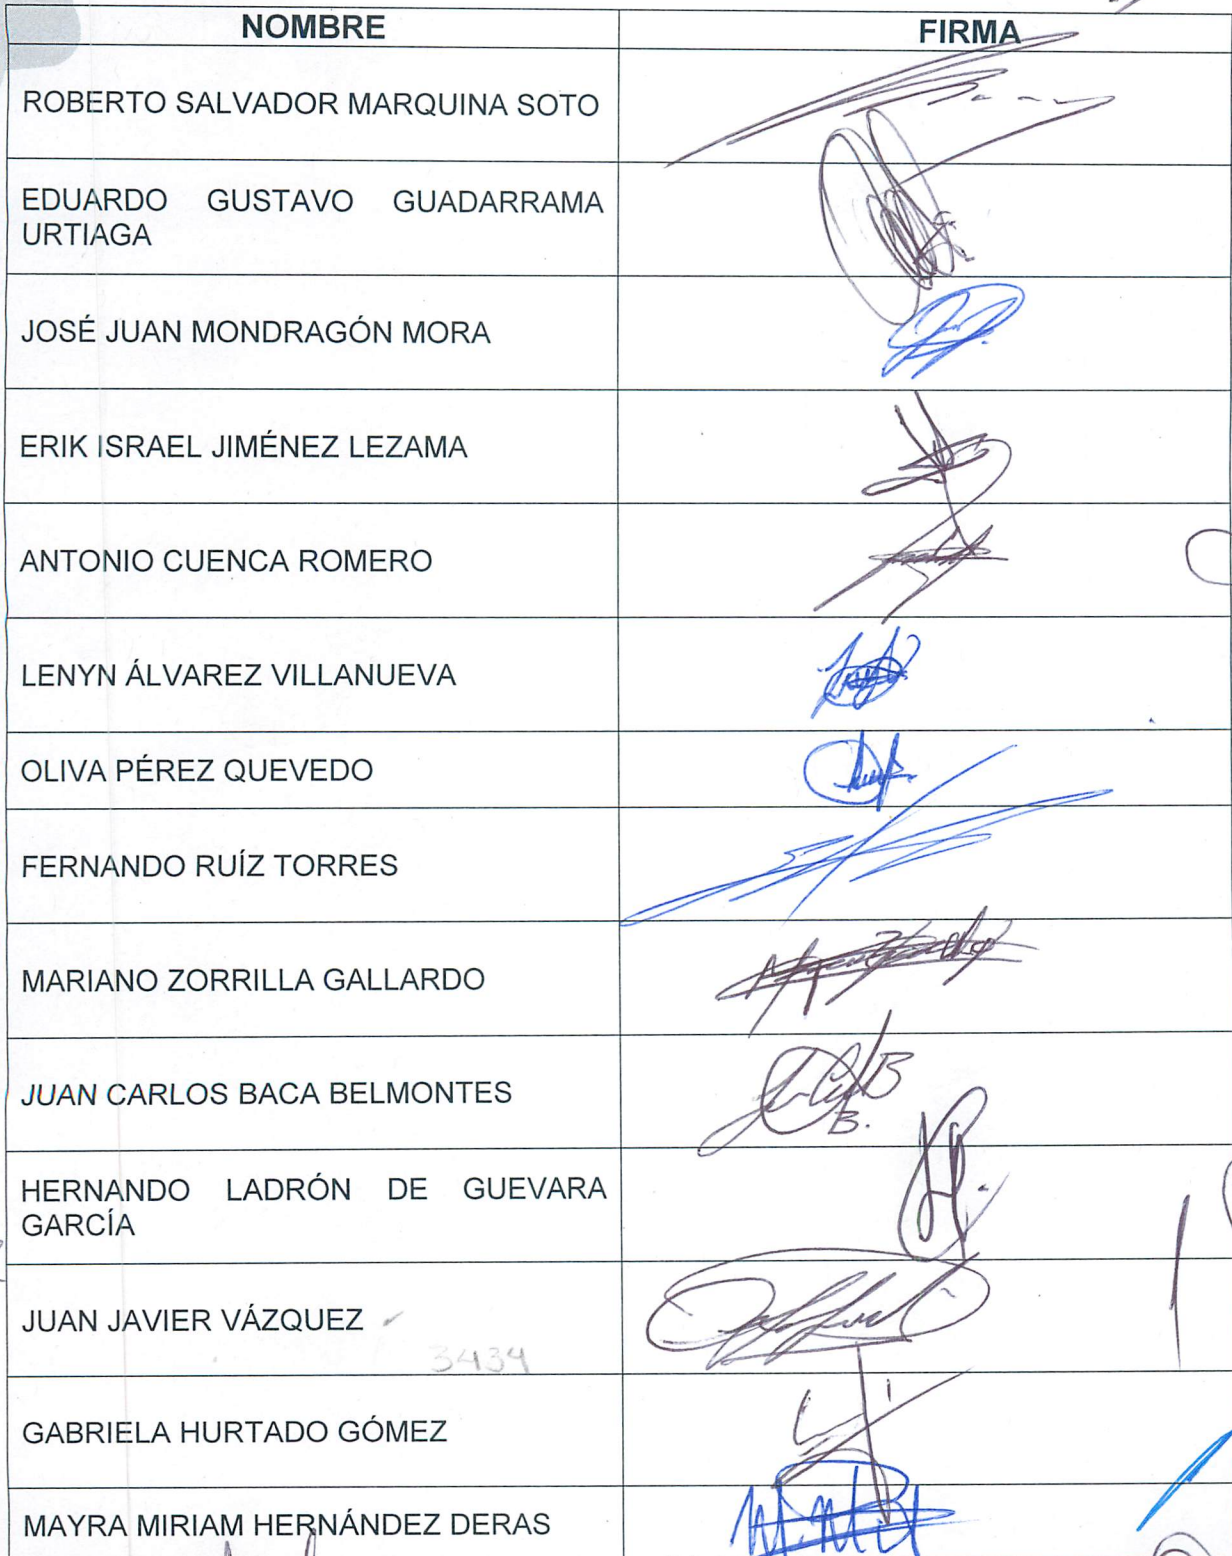 NOMBRE FIRMA
ROBERTO SALVADOR MARQUINA SOTO
EDUARDO GUSTAVO GUADARRAMA
URTIAGA
JOSÉ JUAN MONDRAGÓN MORA
ERIK ISRAEL JIMÉNEZ LEZAMA
ANTONIO CUENCA ROMERO
LENYN ÁLVAREZ VILLANUEVA
OLIVA PÉREZ QUEVEDO
FERNANDO RUÍZ TORRES
MARIANO ZORRILLA GALLARDO
JUAN CARLOS BACA BELMONTES
HERNANDO LADRÓN DE GUEVARA
GARCÍA
JUAN JAVIER VÁZQUEZ
3434
GABRIELA HURTADO GÓMEZ
MAYRA MIRIAM HERNÁNDEZ DERAS